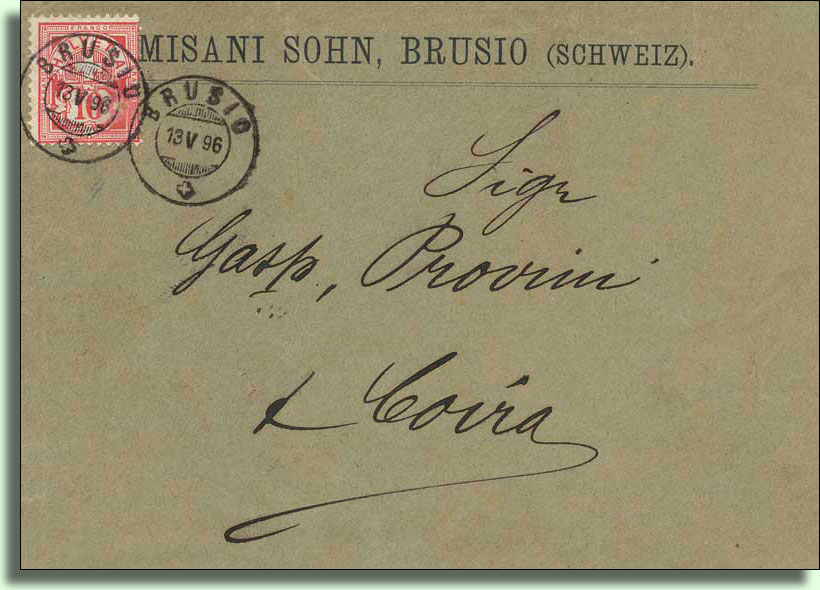 FRANCO
10
BRUSIO
13 V 96
BRUSIO
13 V 96
MISANI SOHN, BRUSIO (SCHWEIZ).
Sigr
Gasp. Provini
Coira